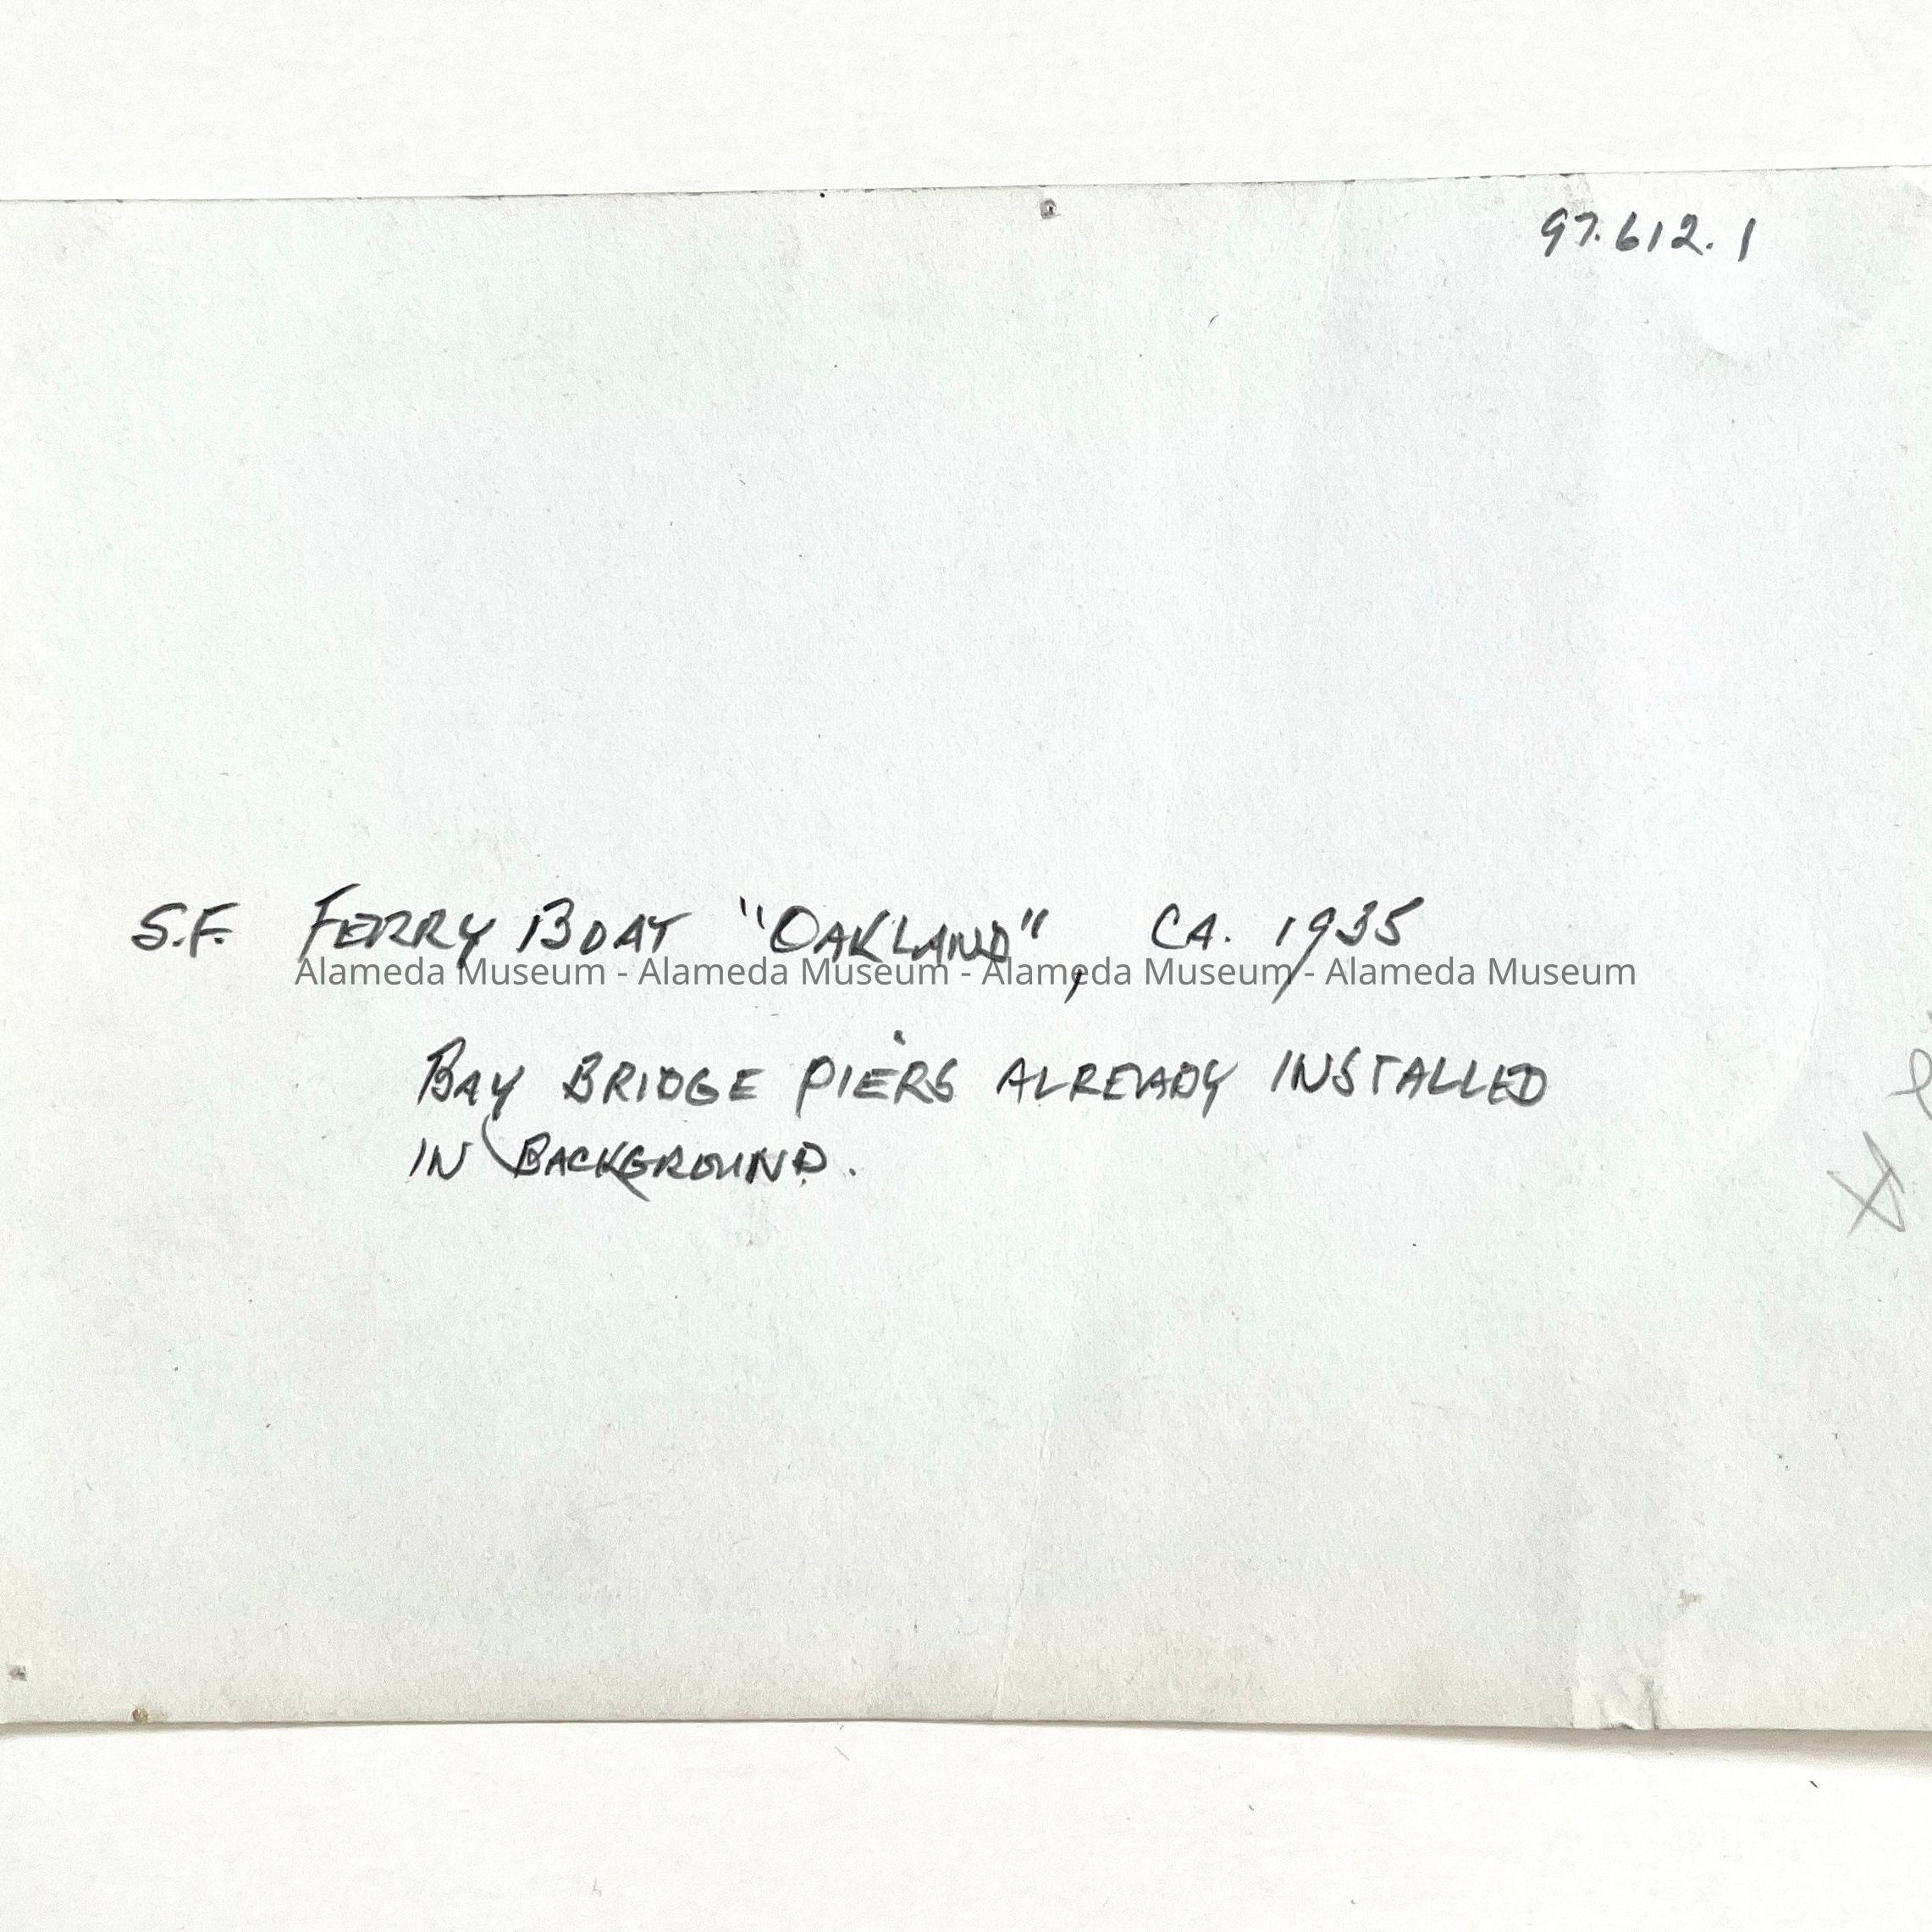 97.612.1
S.F. FERRY BOAT "OAKLAND", CA. 1935
Alameda Museum - Alameda Museum - Alameda Museum - Alameda Museum
BAY BRIDGE PIERS ALREADY INSTALLED
IN BACKGROUND.